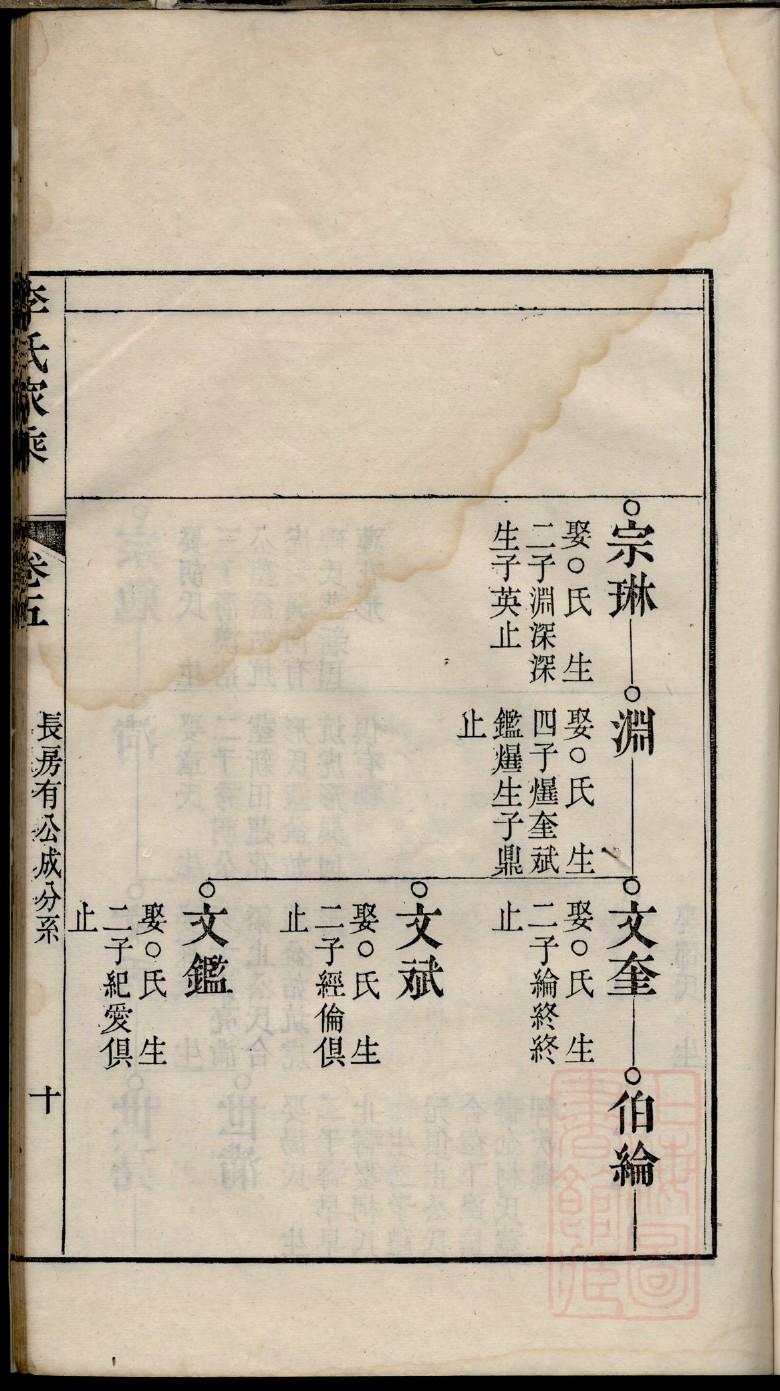 宗琳
娶○氏 生
二子淵深深
生子英止
淵
娶○氏 生
四子爅奎斌
鑑爅生子鼎
止
文奎
娶○氏 生
二子綸終終
止
伯綸
文斌
娶○氏 生
二子經倫俱
止
文鑑
娶○氏 生
二子紀愛俱
止
李氏家乘
卷五
長房有公成分系
十